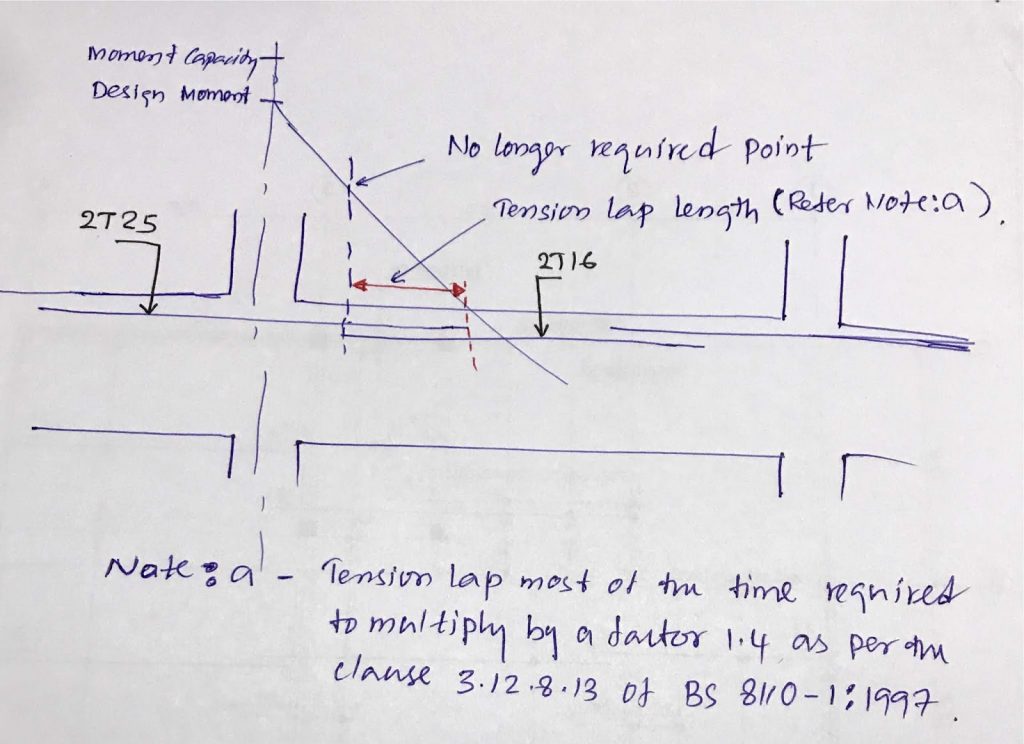 Moment Capacity
Design Moment
No longer required point
Tension lap length (Refer Note:a).
2T25
2T16
Note: a - Tension lap most of the time required
to multiply by a factor 1.4 as per the
clause 3.12.8.13 of BS 8110-1:1997.